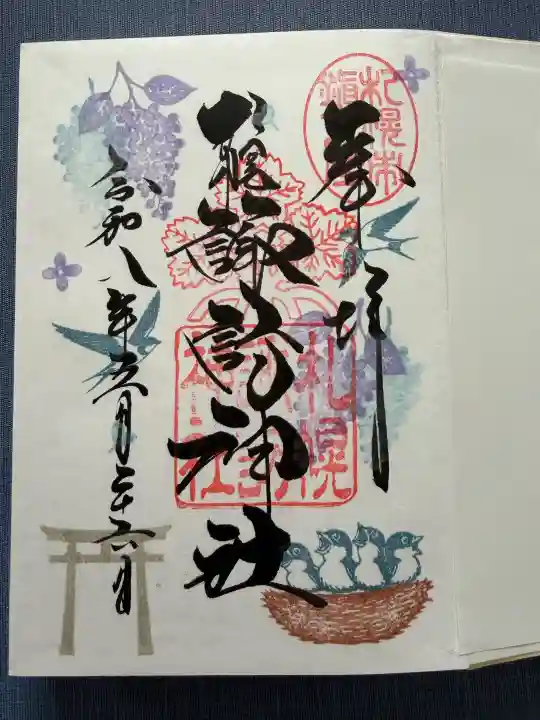 札幌市
奉拝
札幌諏訪神社
札幌
諏訪
神社
令和八年六月二十六日